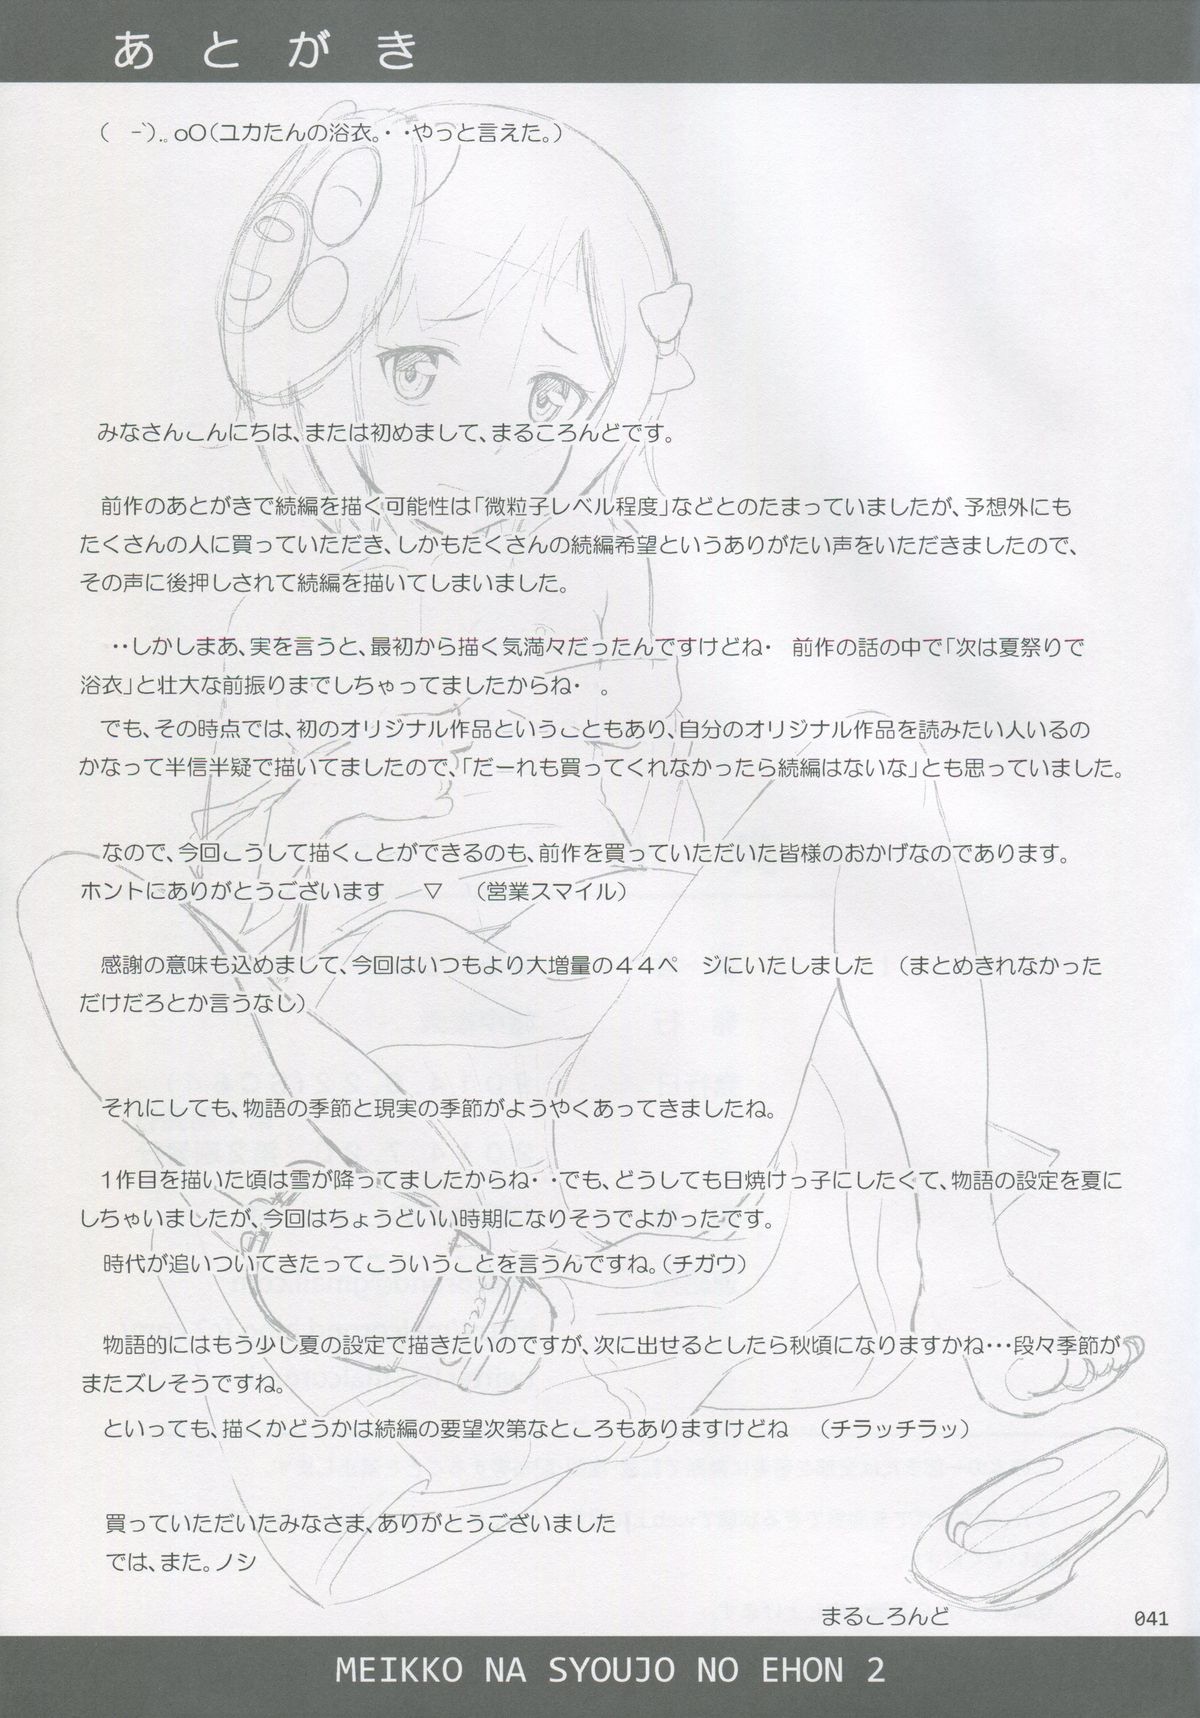 あとがき
( ｰ`).｡oO(ユカたんの浴衣。・・やっと言えた。)
みなさんこんにちは、または初めまして、まるころんどです。
前作のあとがきで続編を描く可能性は「微粒子レベル程度」などとのたまっていましたが、予想外にも
たくさんの人に買っていただき、しかもたくさんの続編希望というありがたい声をいただきましたので、
その声に後押しされて続編を描いてしまいました。
・・しかしまあ、実を言うと、最初から描く気満々だったんですけどね・ 前作の話の中で「次は夏祭りで
浴衣」と壮大な前振りまでしちゃってましたからね・ 。
でも、その時点では、初のオリジナル作品ということもあり、自分のオリジナル作品を読みたい人いるの
かなって半信半疑で描いてましたので、「だーれも買ってくれなかったら続編はないな」とも思っていました。
なので、今回こうして描くことができるのも、前作を買っていただいた皆様のおかげなのであります。
ホントにありがとうございます ▽ (営業スマイル)
感謝の意味も込めまして、今回はいつもより大増量の４４ペ ジにいたしました (まとめきれなかった
だけだろとか言うなし)
それにしても、物語の季節と現実の季節がようやくあってきましたね。
１作目を描いた頃は雪が降ってましたからね・・でも、どうしても日焼けっ子にしたくて、物語の設定を夏に
しちゃいましたが、今回はちょうどいい時期になりそうでよかったです。
時代が追いついてきたってこういうことを言うんですね。(チガウ)
物語的にはもう少し夏の設定で描きたいのですが、次に出せるとしたら秋頃になりますかね・・・段々季節が
またズレそうですね。
といっても、描くかどうかは続編の要望次第なところもありますけどね (チラッチラッ)
買っていただいたみなさま、ありがとうございました
では、また。ノシ
まるころんど
041
MEIKKO NA SYOUJO NO EHON 2